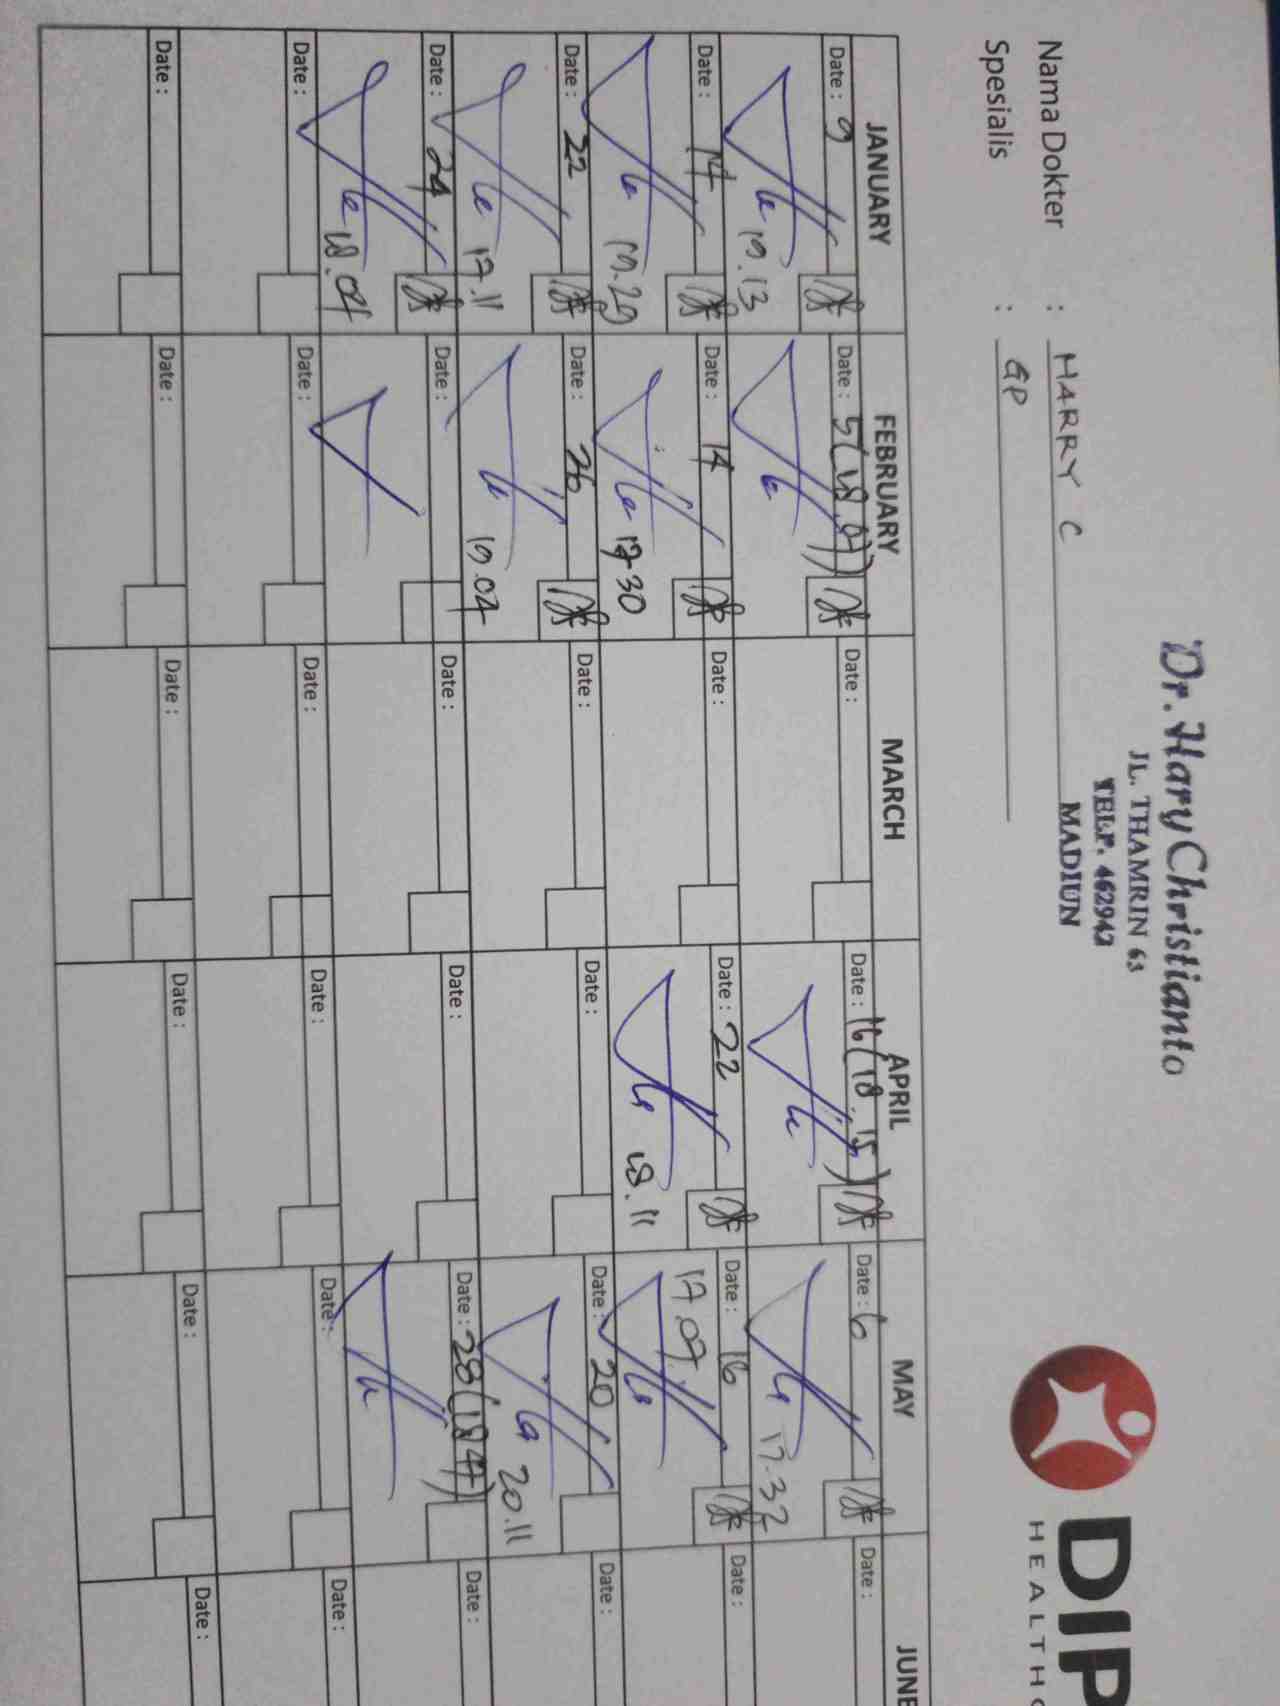 Dr. Hary Christianto
JL. THAMRIN 63
TELP. 462942
MADIUN
DIP
HEALTHC
Nama Dokter : HARRY C
Spesialis : GP
JANUARY FEBRUARY MARCH APRIL MAY JUNE
Date : 9 Date : 5 (18.07) Date : Date : 16 (18.15) Date : 6 Date :
19.13 17.32
Date : 14 Date : 14 Date : Date : 22 Date : 16 Date :
19.29 17.30 18.11 17.09
Date : 22 Date : 26 Date : Date : Date : 20 Date :
17.11 19.04 20.11
Date : 24 Date : Date : Date : Date : 28 (18.47) Date :
18.04
Date : Date : Date : Date : Date : Date :
Date : Date : Date : Date : Date : Date :